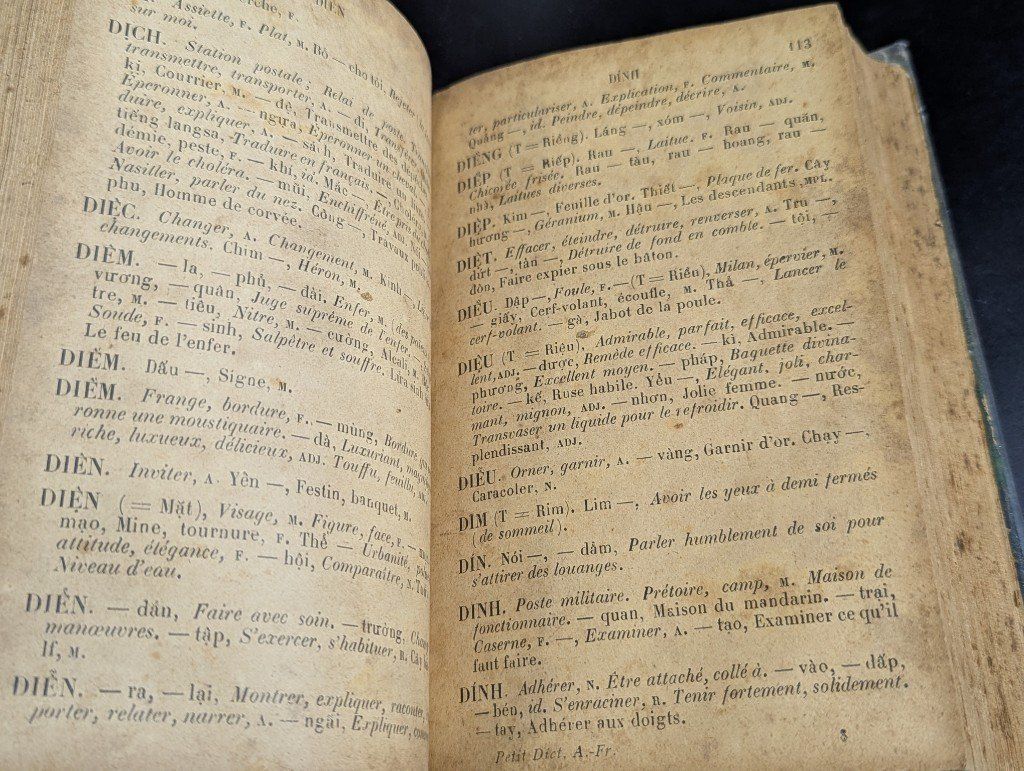 DIÊN
Assiette, F. Plat, M. Bỏ — cho tôi. Rejeter
sur moi.
DỊCH. Station postale; Relai de poste,
transmettre, transporter, A. — đi,
ki, Courrier, M. — dê, Transmettre des
Éperonner, A. — ngựa, Éperonner un cheval.
duire, expliquer, A. — sách, Traduire un
tiếng langsa, Traduire en français.
démie, peste, F. — khí, id. Mắc —, Être pris
Avoir le choléra. — mũi, Enchiffrené, ADJ.
Nasiller, parler du nez. Công —, Travaux
phu, Homme de corvée.
DIẾC. Changer, A. Changement, M. Kinh —,
changements. Chim —, Héron, M.
DIÊM. — la, — phủ, — đài, Enfer, M. (des
vương, — quân, Juge suprême de l'enfer.
tre, M. — tiêu, Nitre, M. — cường, Alcali, M.
Soude, F. — sinh, Salpêtre et souffre. Lửa sinh
Le feu de l'enfer.
DIẾM. Dấu —, Signe, M.
DIỀM. Frange, bordure, F. — mùng, Bordure
ronne une moustiquaire. — dà, Luxuriant,
riche, luxueux, délicieux, ADJ. Touffu, feuillu,
DIÊN. Inviter, A. Yên —, Festin, banquet, M.
DIỆN (= Mặt), Visage, M. Figure, face, F. —
mạo, Mine, tournure, F. Thể — Urbanité,
attitude, élégance, F. — hội, Comparaître, N.
Niveau d'eau.
DIỄN. — dấn, Faire avec soin. — trường,
manœuvres. — tập, S'exercer, s'habituer, R. Cây
If, M.
DIỄN. — ra, — lại, Montrer, expliquer, raconter,
porter, relater, narrer, A. — ngãi, Expliquer,
DÍNH
113
ter, particulariser, A. Explication, F. Commentaire, M.
Quảng —, id. Peindre, dépeindre, décrire, A.
DIẾNG (T = Riếng). Láng —, xóm —, Voisin, ADJ.
DIẾP (T = Riếp). Rau —, Laitue. F. Rau — quăn,
Chicorée frisée. Rau — tàu, rau — hoang, rau —
nhà, Laitues diverses.
DIỆP. Kim —, Feuille d'or. Thiết —, Plaque de fer. Cây
hương —, Géranium, M. Hậu —, Les descendants, MPL.
DIỆT. Effacer, éteindre, détruire, renverser, A. Tru —,
dứt —, tân —, Détruire de fond en comble. — tội, —
đòn, Faire expier sous le bâton.
DIỀU. Dập —, Foule, F. — (T = Riều), Milan, épervier, M.
— giấy, Cerf-volant, écoufle, M. Thả —, Lancer le
cerf-volant. — gà, Jabot de la poule.
DIỆU (T = Riệu). Admirable, parfait, efficace, excel-
lent, ADJ. — dược, Remède efficace. — kì, Admirable. —
phương, Excellent moyen. — pháp, Baguette divina-
toire. — kế, Ruse habile. Yếu —, Élégant, joli, char-
mant, mignon, ADJ. — nhơn, Jolie femme. — nước,
Transvaser un liquide pour le refroidir. Quang —, Res-
plendissant, ADJ.
DIỄU. Orner, garnir, A. — vàng, Garnir d'or. Chạy —,
Caracoler, N.
DIM (T = Rim). Lim —, Avoir les yeux à demi fermés
(de sommeil).
DÍN. Nói —, — dầm, Parler humblement de soi pour
s'attirer des louanges.
DINH. Poste militaire. Prétoire, camp, M. Maison de
fonctionnaire. — quan, Maison du mandarin. — trại,
Caserne, F. —, Examiner, A. — tạo, Examiner ce qu'il
faut faire.
DÍNH. Adhérer, N. Être attaché, collé à. — vào, — dấp,
— bén, id. S'enraciner, R. Tenir fortement, solidement.
— tay, Adhérer aux doigts.
Petit Dict. A.-Fr.
8